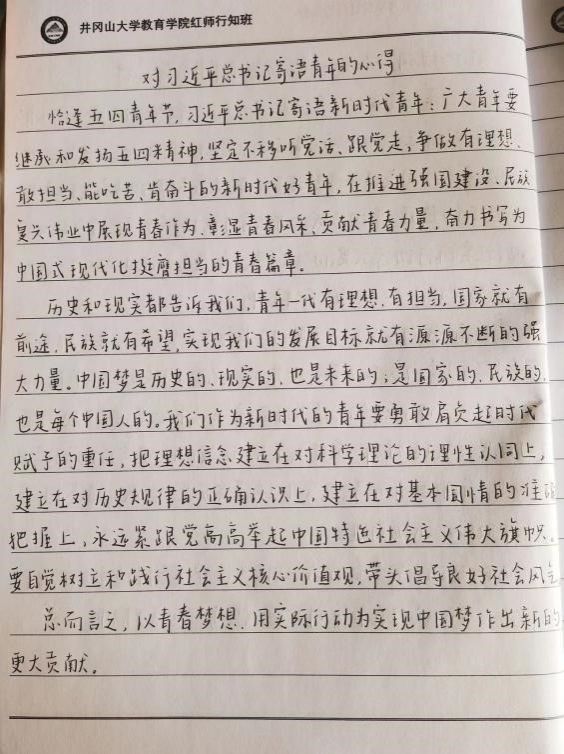 井冈山大学教育学院红师行知班
对习近平总书记寄语青年的心得
恰逢五四青年节,习近平总书记寄语新时代青年:广大青年要
继承和发扬五四精神,坚定不移听党话、跟党走,争做有理想、
敢担当、能吃苦、肯奋斗的新时代好青年,在推进强国建设、民族
复兴伟业中展现青春作为、彰显青春风采、贡献青春力量,奋力书写为
中国式现代化挺膺担当的青春篇章。
历史和现实都告诉我们,青年一代有理想、有担当,国家就有
前途,民族就有希望,实现我们的发展目标就有源源不断的强
大力量。中国梦是历史的、现实的,也是未来的;是国家的、民族的,
也是每个中国人的。我们作为新时代的青年要勇敢肩负起时代
赋予的重任,把理想信念建立在对科学理论的理性认同上,
建立在对历史规律的正确认识上,建立在对基本国情的准确
把握上,永远紧跟党高高举起中国特色社会主义伟大旗帜。
要自觉树立和践行社会主义核心价值观,带头倡导良好社会风气
总而言之,以青春梦想、用实际行动为实现中国梦作出新的
更大贡献。